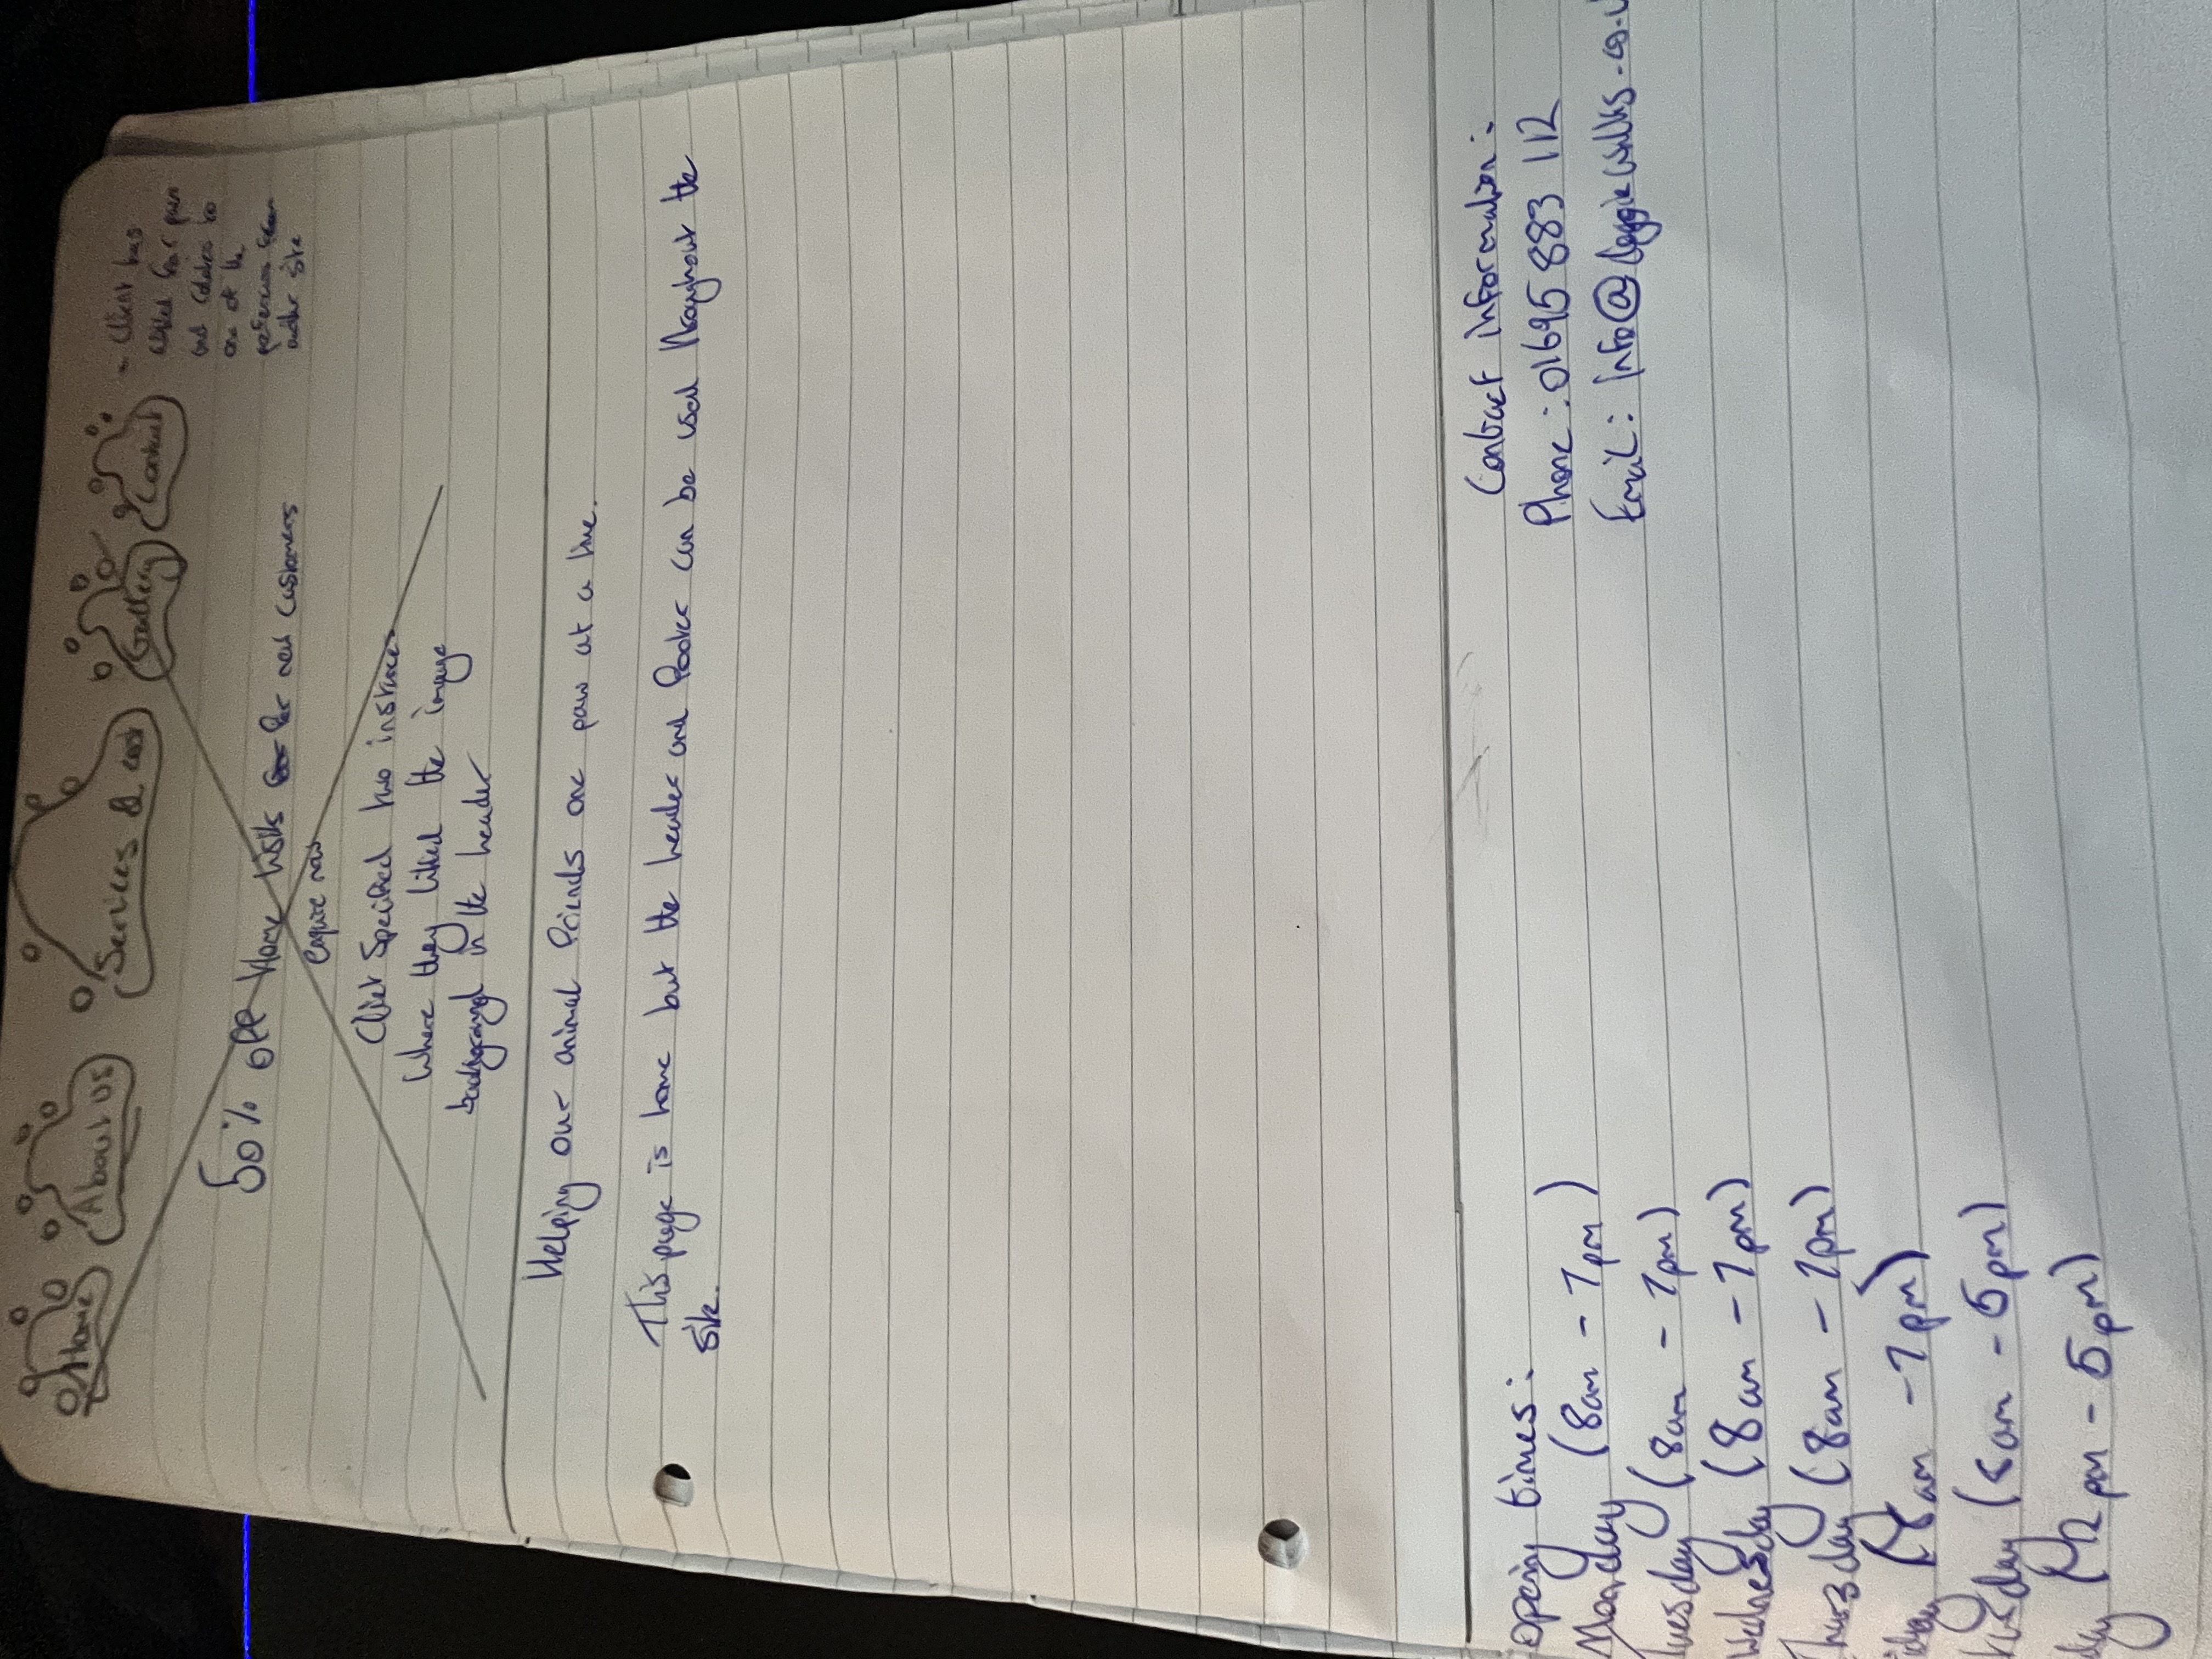 Home About us Services & cost Gallery Contact
- Client has
added four paws
and
one of the
from
another site
50% off Home visits for new customers
enquire now
Client specified two instances
Where they liked the image
background in the header
Helping our animal friends one paw at a time.
This page is home but the header and footer can be used throughout the
site.
opening times:
Monday (8am - 7pm)
Tuesday (8am - 7pm)
Wednesday (8am - 7pm)
Thursday (8am - 7pm)
iday (8am - 7pm)
turday (8am - 5pm)
day (12pm - 5pm)
Contact information:
Phone: 01695 883 112
Email: info@doggiewalks.co.u